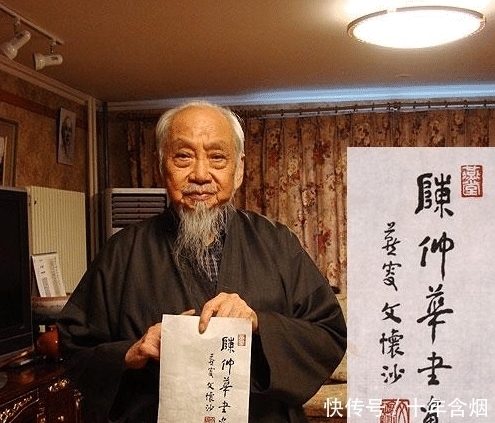 陳仲華書
燕叟文懷沙
陳仲華書
燕叟文懷沙
快传号
十年含烟